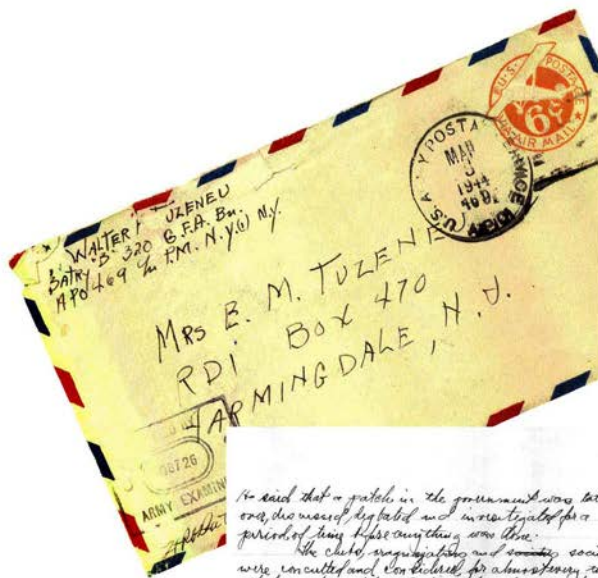 U.S. POSTAGE
6¢
VIA AIR MAIL
U.S. A Y POSTA
MAR
3
1944
WALTER TUZENEU
BATRY "B" 320 G.F.A. Bn.
APO 469 c/o P.M. N.Y.(1) N.Y.
MRS E. M. TUZENE
RD1 BOX 470
FARMINGDALE, N.J.
08726
ARMY EXAMIN
He said that a patch in the government was
over, discussed, debated and investigated for a
period of time before anything was done.
The clubs, organizations and soci
were consulted and considered for almost every